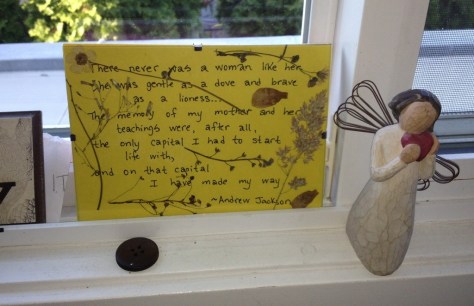 There never was a woman like her.
She was gentle as a dove and brave
as a lioness...
The memory of my mother and her
teachings were, after all,
the only capital I had to start
life with,
and on that capital
I have made my way
~Andrew Jackson